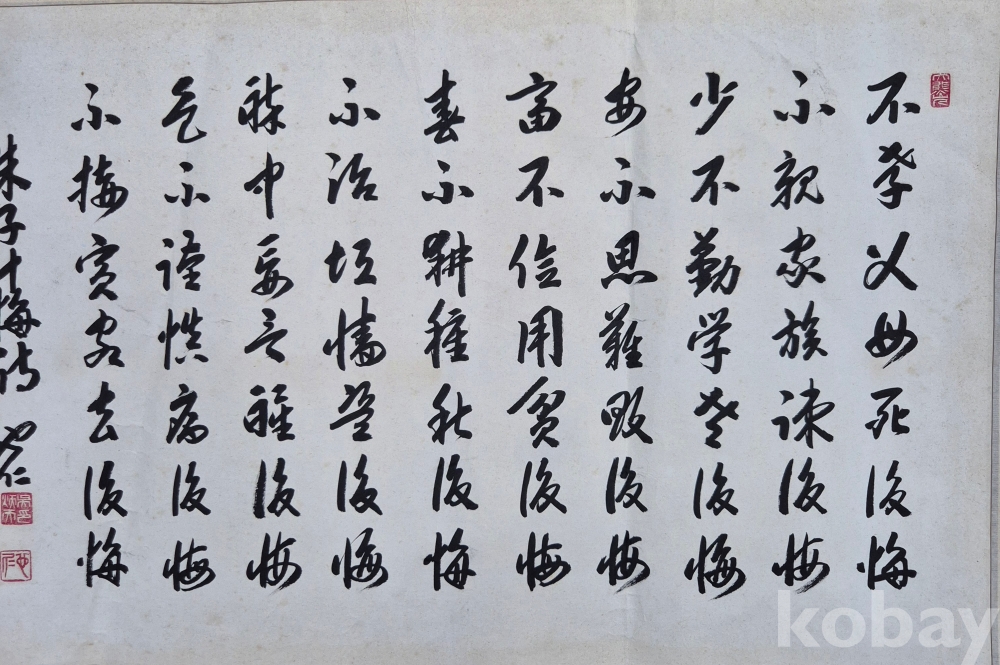 不孝父母死後悔
不親家族疎後悔
少不勤学老後悔
安不思難敗後悔
富不儉用貧後悔
春不耕種秋後悔
不治垣墻盜後悔
色不謹慎病後悔
酔中妄言醒後悔
不接賓客去後悔
朱子十悔詩
kobay